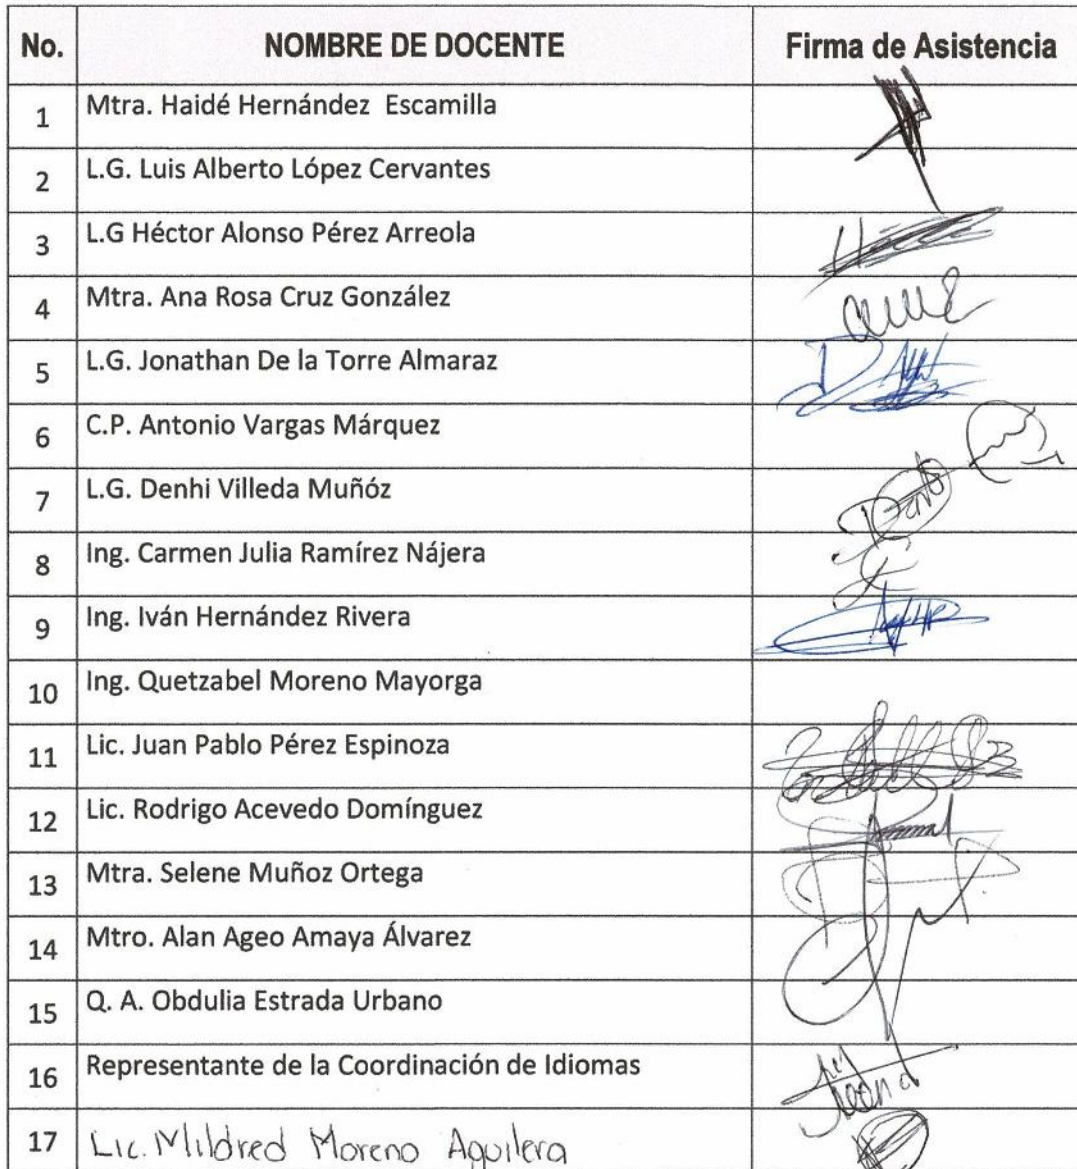 No. NOMBRE DE DOCENTE Firma de Asistencia
1 Mtra. Haidé Hernández Escamilla
2 L.G. Luis Alberto López Cervantes
3 L.G Héctor Alonso Pérez Arreola
4 Mtra. Ana Rosa Cruz González
5 L.G. Jonathan De la Torre Almaraz
6 C.P. Antonio Vargas Márquez
7 L.G. Denhi Villeda Muñóz
8 Ing. Carmen Julia Ramírez Nájera
9 Ing. Iván Hernández Rivera
10 Ing. Quetzabel Moreno Mayorga
11 Lic. Juan Pablo Pérez Espinoza
12 Lic. Rodrigo Acevedo Domínguez
13 Mtra. Selene Muñoz Ortega
14 Mtro. Alan Ageo Amaya Álvarez
15 Q. A. Obdulia Estrada Urbano
16 Representante de la Coordinación de Idiomas
17 Lic. Mildred Moreno Aguilera